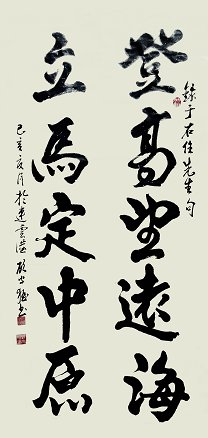 錄于右任先生句
登高望遠海
立馬定中原
己亥夏月於連雲港